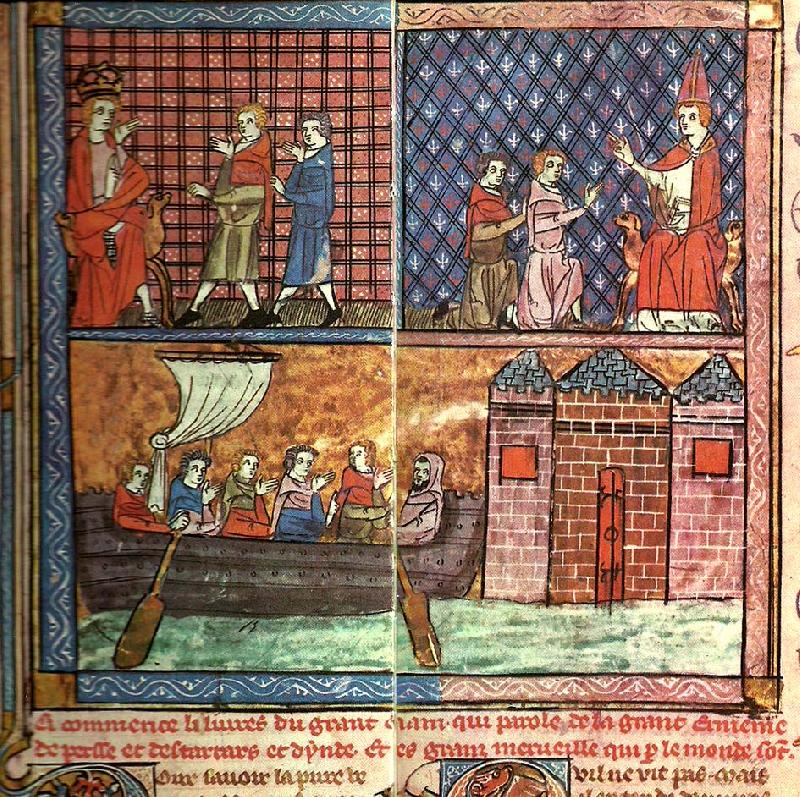 Ci commence li livres du grant caam qui parole de la grant ermenie
de persse et des tartars et dynde. Et des granz merveille qui p le monde sot.
Our savoir la pure ve
vil ne vit pas. mais